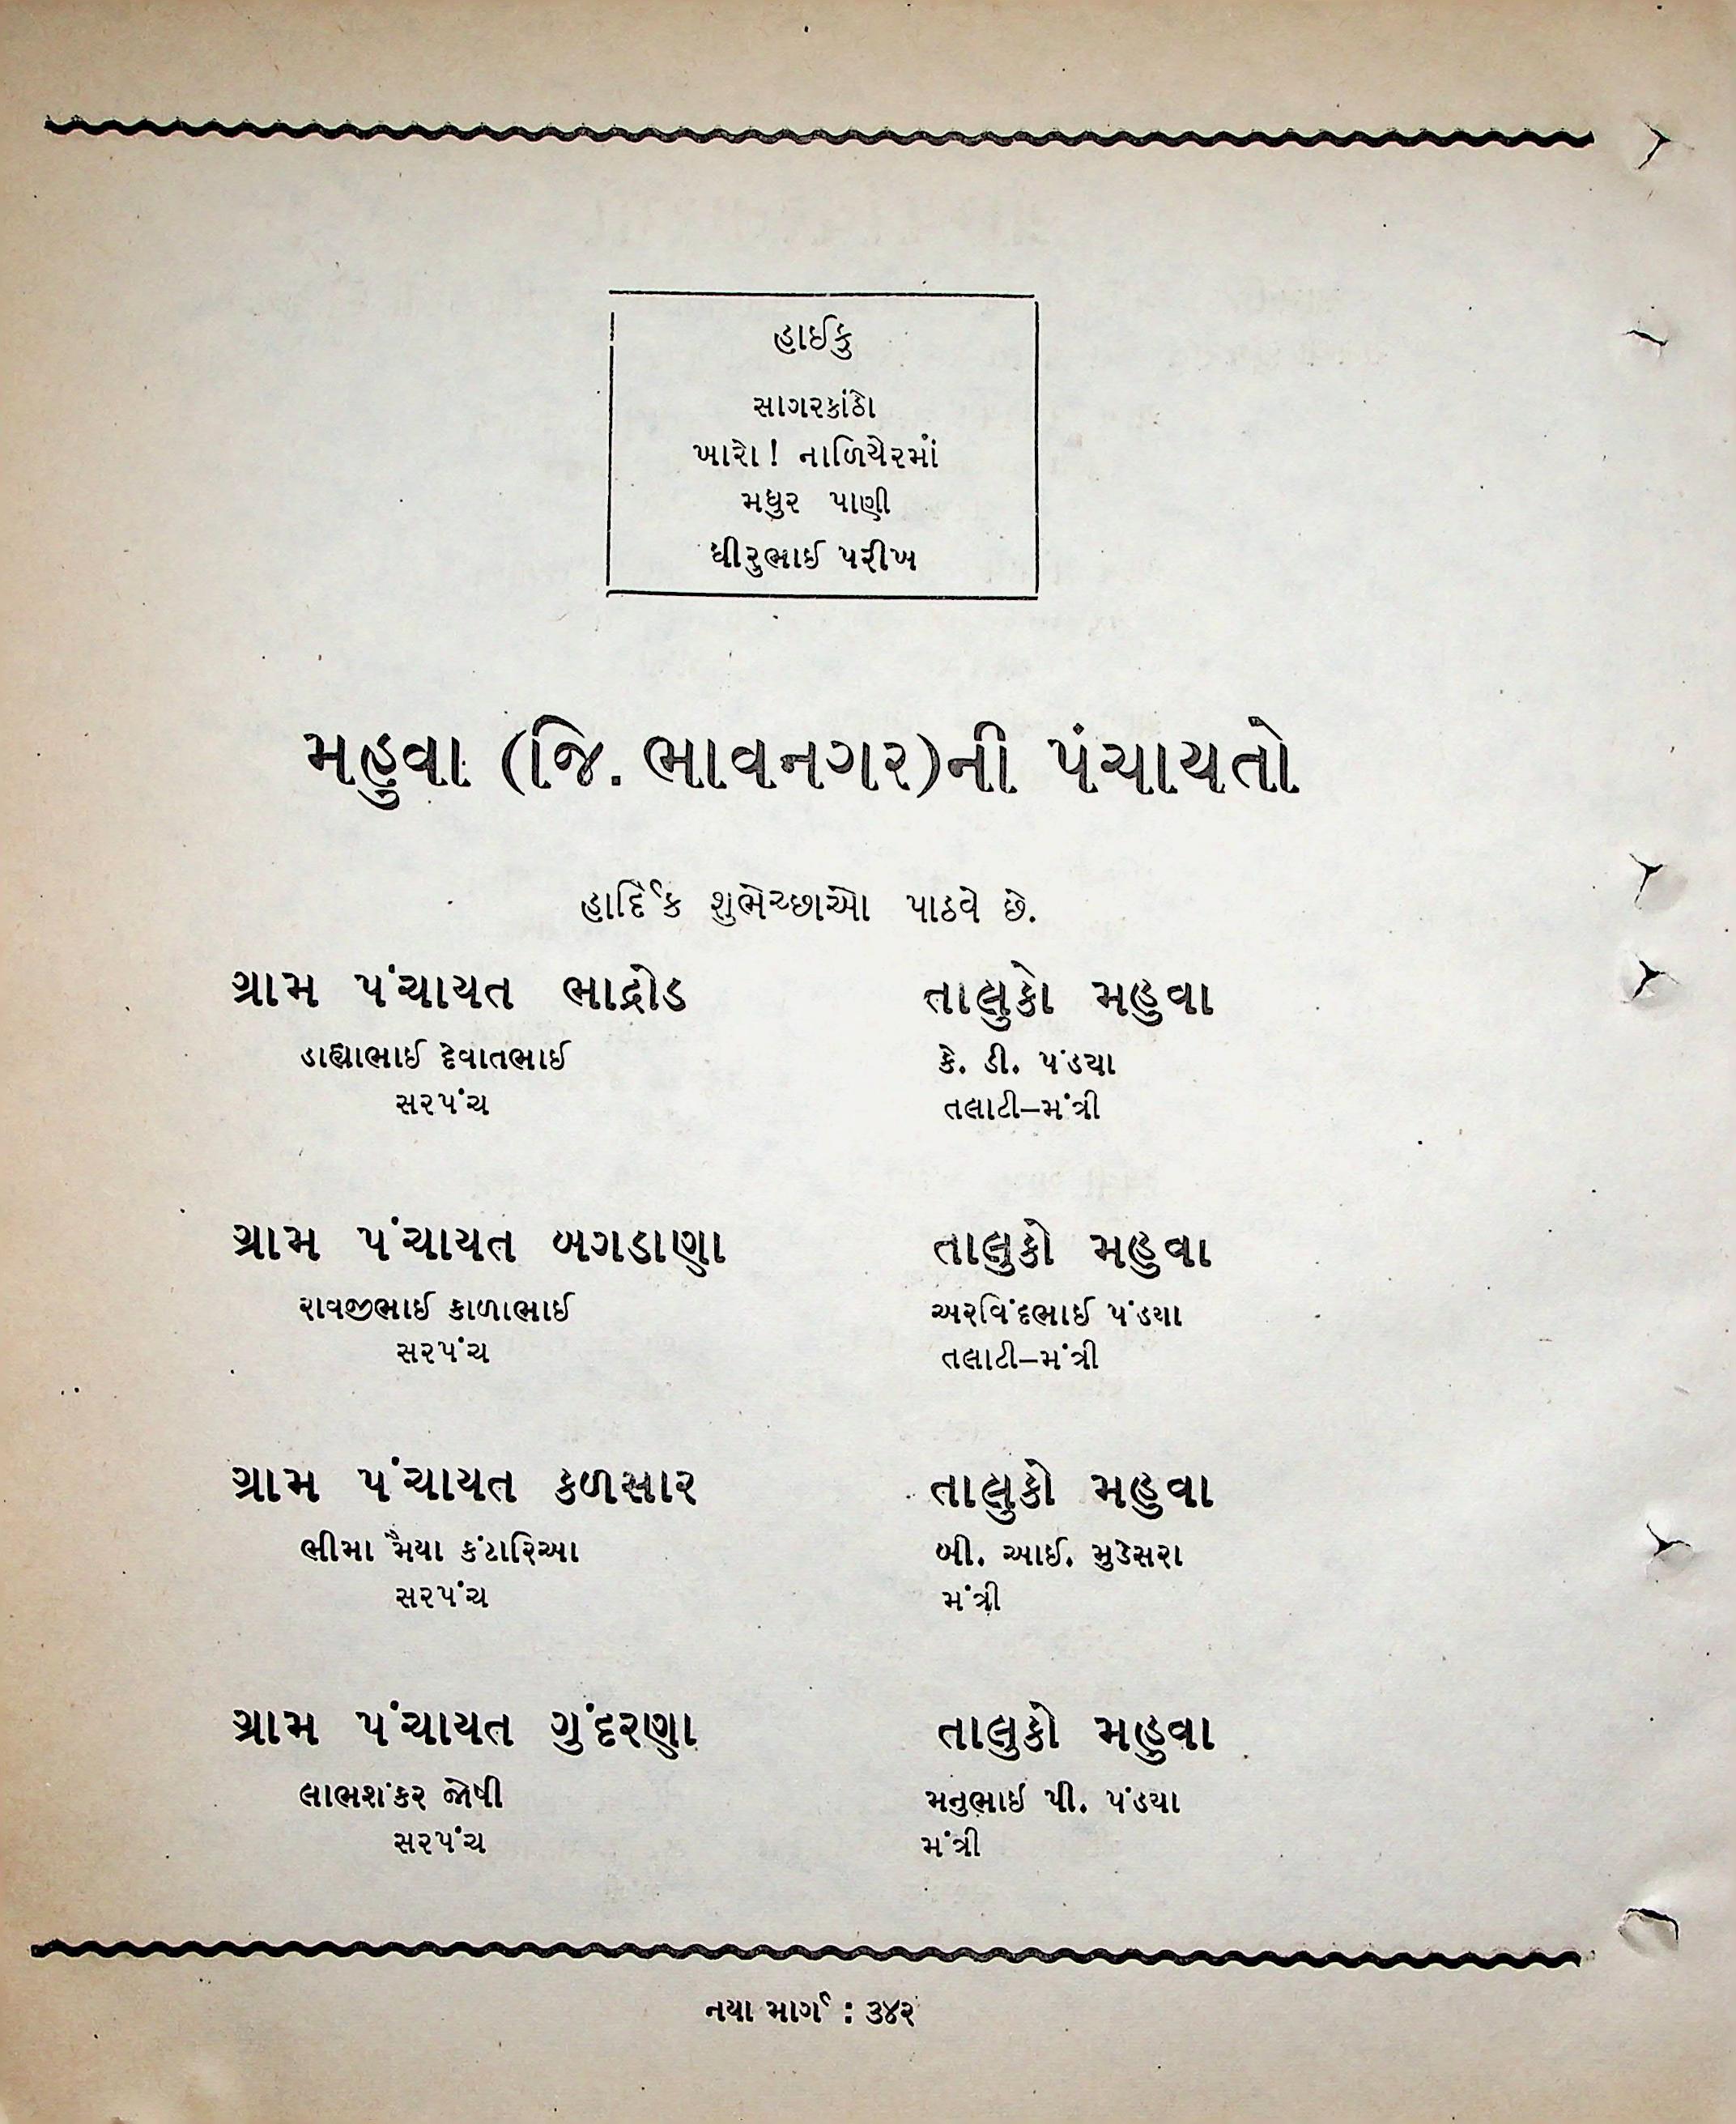 હાઈકુ
સાગરકાંઠો
ખારો! નાળિયેરમાં
મધુર પાણી
ધીરુભાઈ પરીખ
મહુવા (જિ. ભાવનગર)ની પંચાયતો
હાર્દિક શુભેચ્છાઓ પાઠવે છે.
ગ્રામ પંચાયત ભાદ્રોડ તાલુકો મહુવા
ડાહ્યાભાઈ દેવાતભાઈ કે. ડી. પંડયા
સરપંચ તલાટી–મંત્રી
ગ્રામ પંચાયત બગડાણા તાલુકો મહુવા
રાવજીભાઈ કાળાભાઈ અરવિંદભાઈ પંડયા
સરપંચ તલાટી–મંત્રી
ગ્રામ પંચાયત કળસાર તાલુકો મહુવા
ભીમા મૈયા કંટારિઆ બી. આઈ. મુડેસરા
સરપંચ મંત્રી
ગ્રામ પંચાયત ગુંદરણા તાલુકો મહુવા
લાભશંકર જોષી મનુભાઈ પી. પંડયા
સરપંચ મંત્રી
નયા માર્ગ : ૩૪૨